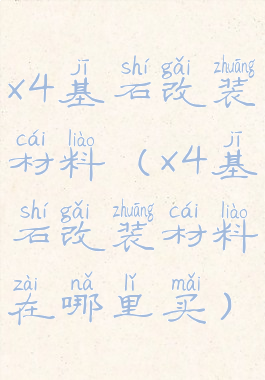 jī shí gǎi zhuāng
x4基石改装
cái liào jī
材料（x4基
shí gǎi zhuāng cái liào
石改装材料
zài nǎ lǐ mǎi
在哪里买）